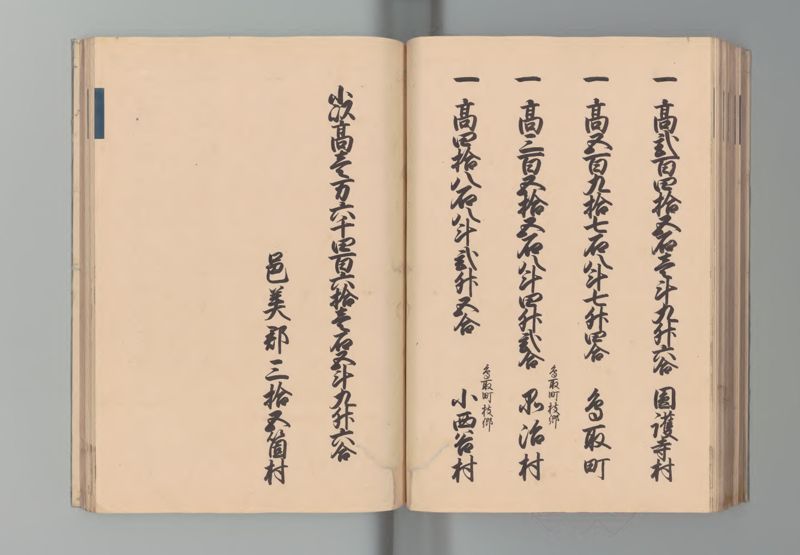 一 高弐百四拾五石壱斗九升六合 圓護寺村
一 高五百九拾七石八斗七升四合 鳥取町
一 高三百五拾五石八斗四升弐合 鳥取町枝郷 品治村
一 高四拾八石八斗弐升五合 鳥取町枝郷 小西谷村
小以高壱万六千四百六拾壱石五斗九升六合
邑美郡三拾五箇村